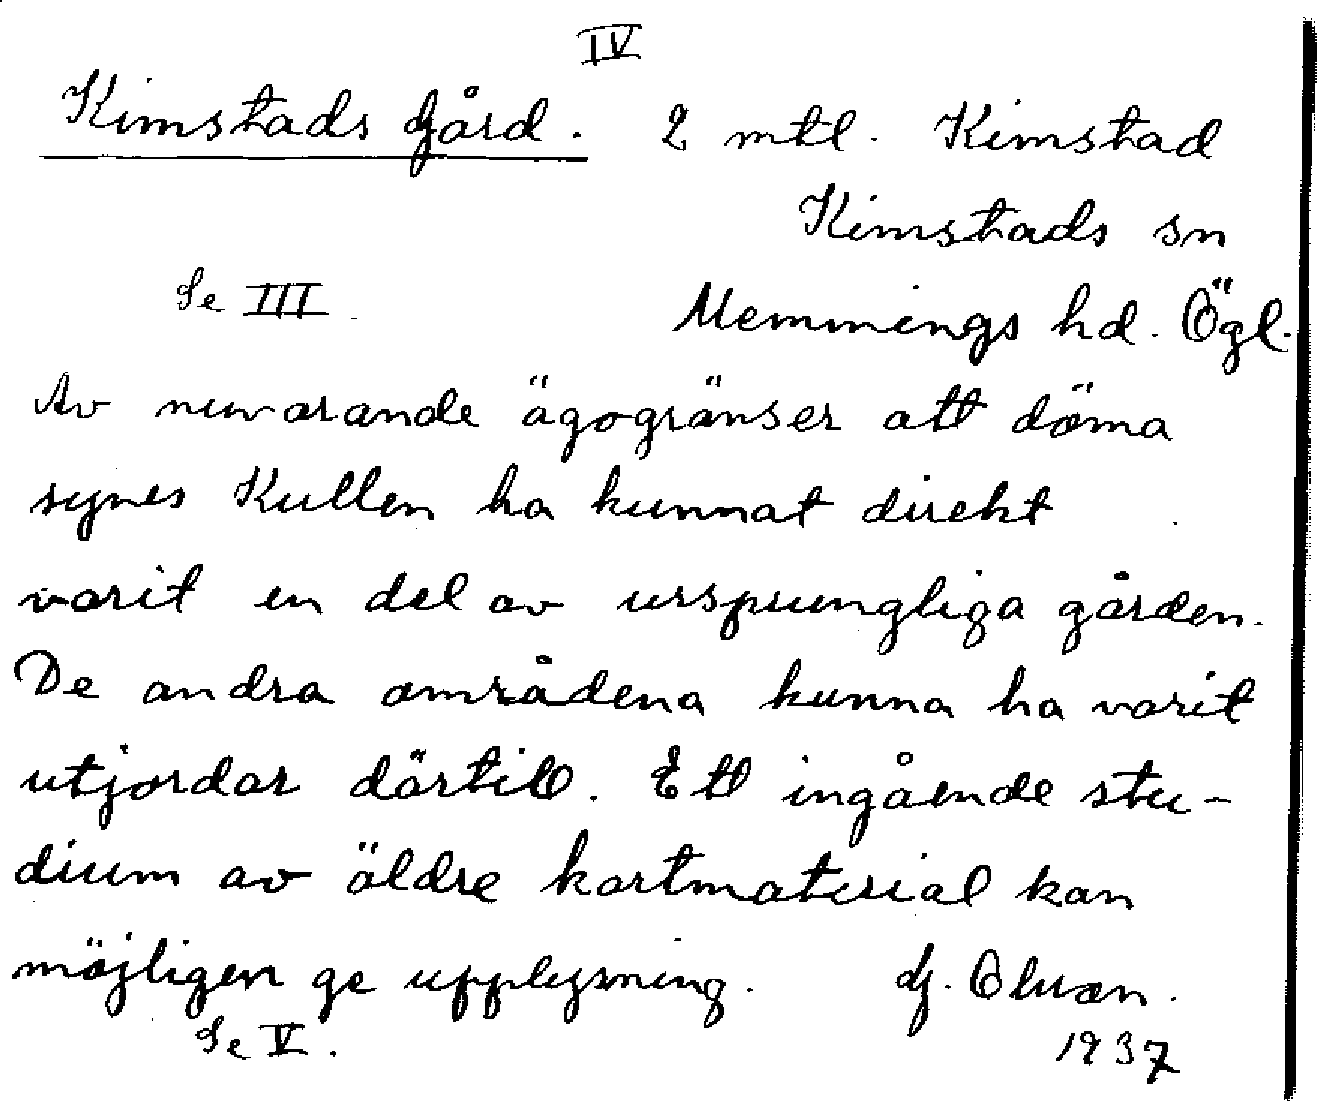 IV
Kimstads Gård. 2 mtl. Kimstad
Kimstads sn
Se III. Memmings hd. Ögl.
Av nuvarande ägogränser att döma
synes Kullen ha kunnat direkt
varit en del av ursprungliga gården.
De andra områdena kunna ha varit
utjordar därtill. Ett ingående stu-
dium av äldre kartmaterial kan
möjligen ge upplysning. G.
Se V. 1937